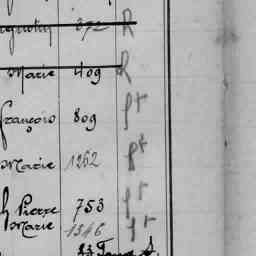 872 R
Marie 409 R
françois 809 pt
Marie 1262 pt
h Pierre 753 pt
Marie 1346 pt